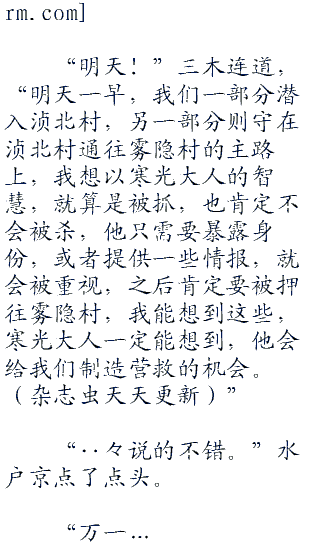 rm.com]
“明天！”三木连道，
“明天一早，我们一部分潜
入浈北村，另一部分则守在
浈北村通往雾隐村的主路
上，我想以寒光大人的智
慧，就算是被抓，也肯定不
会被杀，他只需要暴露身
份，或者提供一些情报，就
会被重视，之后肯定要被押
往雾隐村，我能想到这些，
寒光大人一定能想到，他会
给我们制造营救的机会。
（杂志虫天天更新）”
“··々说的不错。”水
户京点了点头。
“万一…